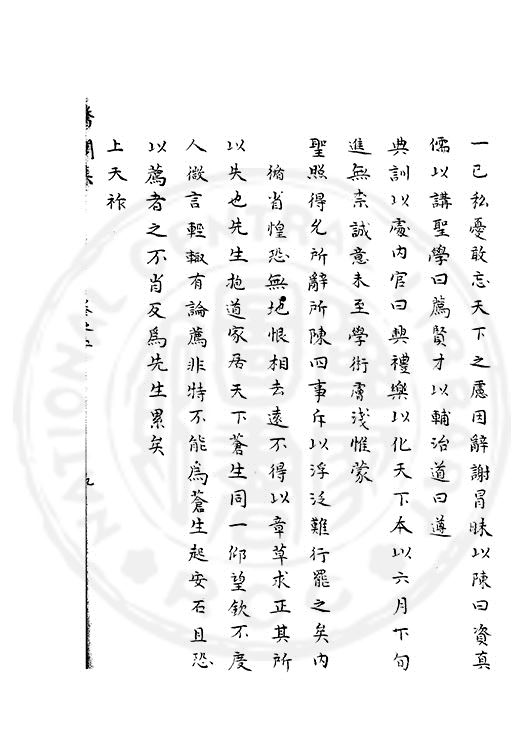 一己私憂敢忘天下之慮因辭謝冒昧以陳曰資真
儒以講聖學曰薦賢才以輔治道曰遵
典訓以處內官曰興禮樂以化天下本以六月下旬
進無柰誠意未至學術膚淺惟蒙
聖照得允所辭所陳四事斥以浮泛難行罷之矣內
脩省惶恐無地恨相去遠不得以章草求正其所
以失也先生抱道家居天下蒼生同一仰望欽不度
人微言輕輙有論薦非特不能爲蒼生起安石且恐
以薦者之不肖反爲先生累矣
上天祚
醫閭集
卷之二
九
NATIONAL CENTRAL LIBRARY